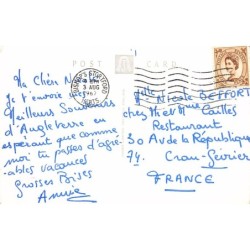 POST CARD
BISHOP'S STORTFORD
3 AUG
1967
HERTS
Ma chère N
Je t'envoie mes
Meilleurs Souvenirs
d'Angleterre en
espérant que comme
moi tu passes d'agré-
ables vacances
Grosses Bises
Annie
Mlle Nicole DEFFORT
chez M et Mme Caittes
Restaurant
30 Av de la République
74. Cran-Gévrier
FRANCE